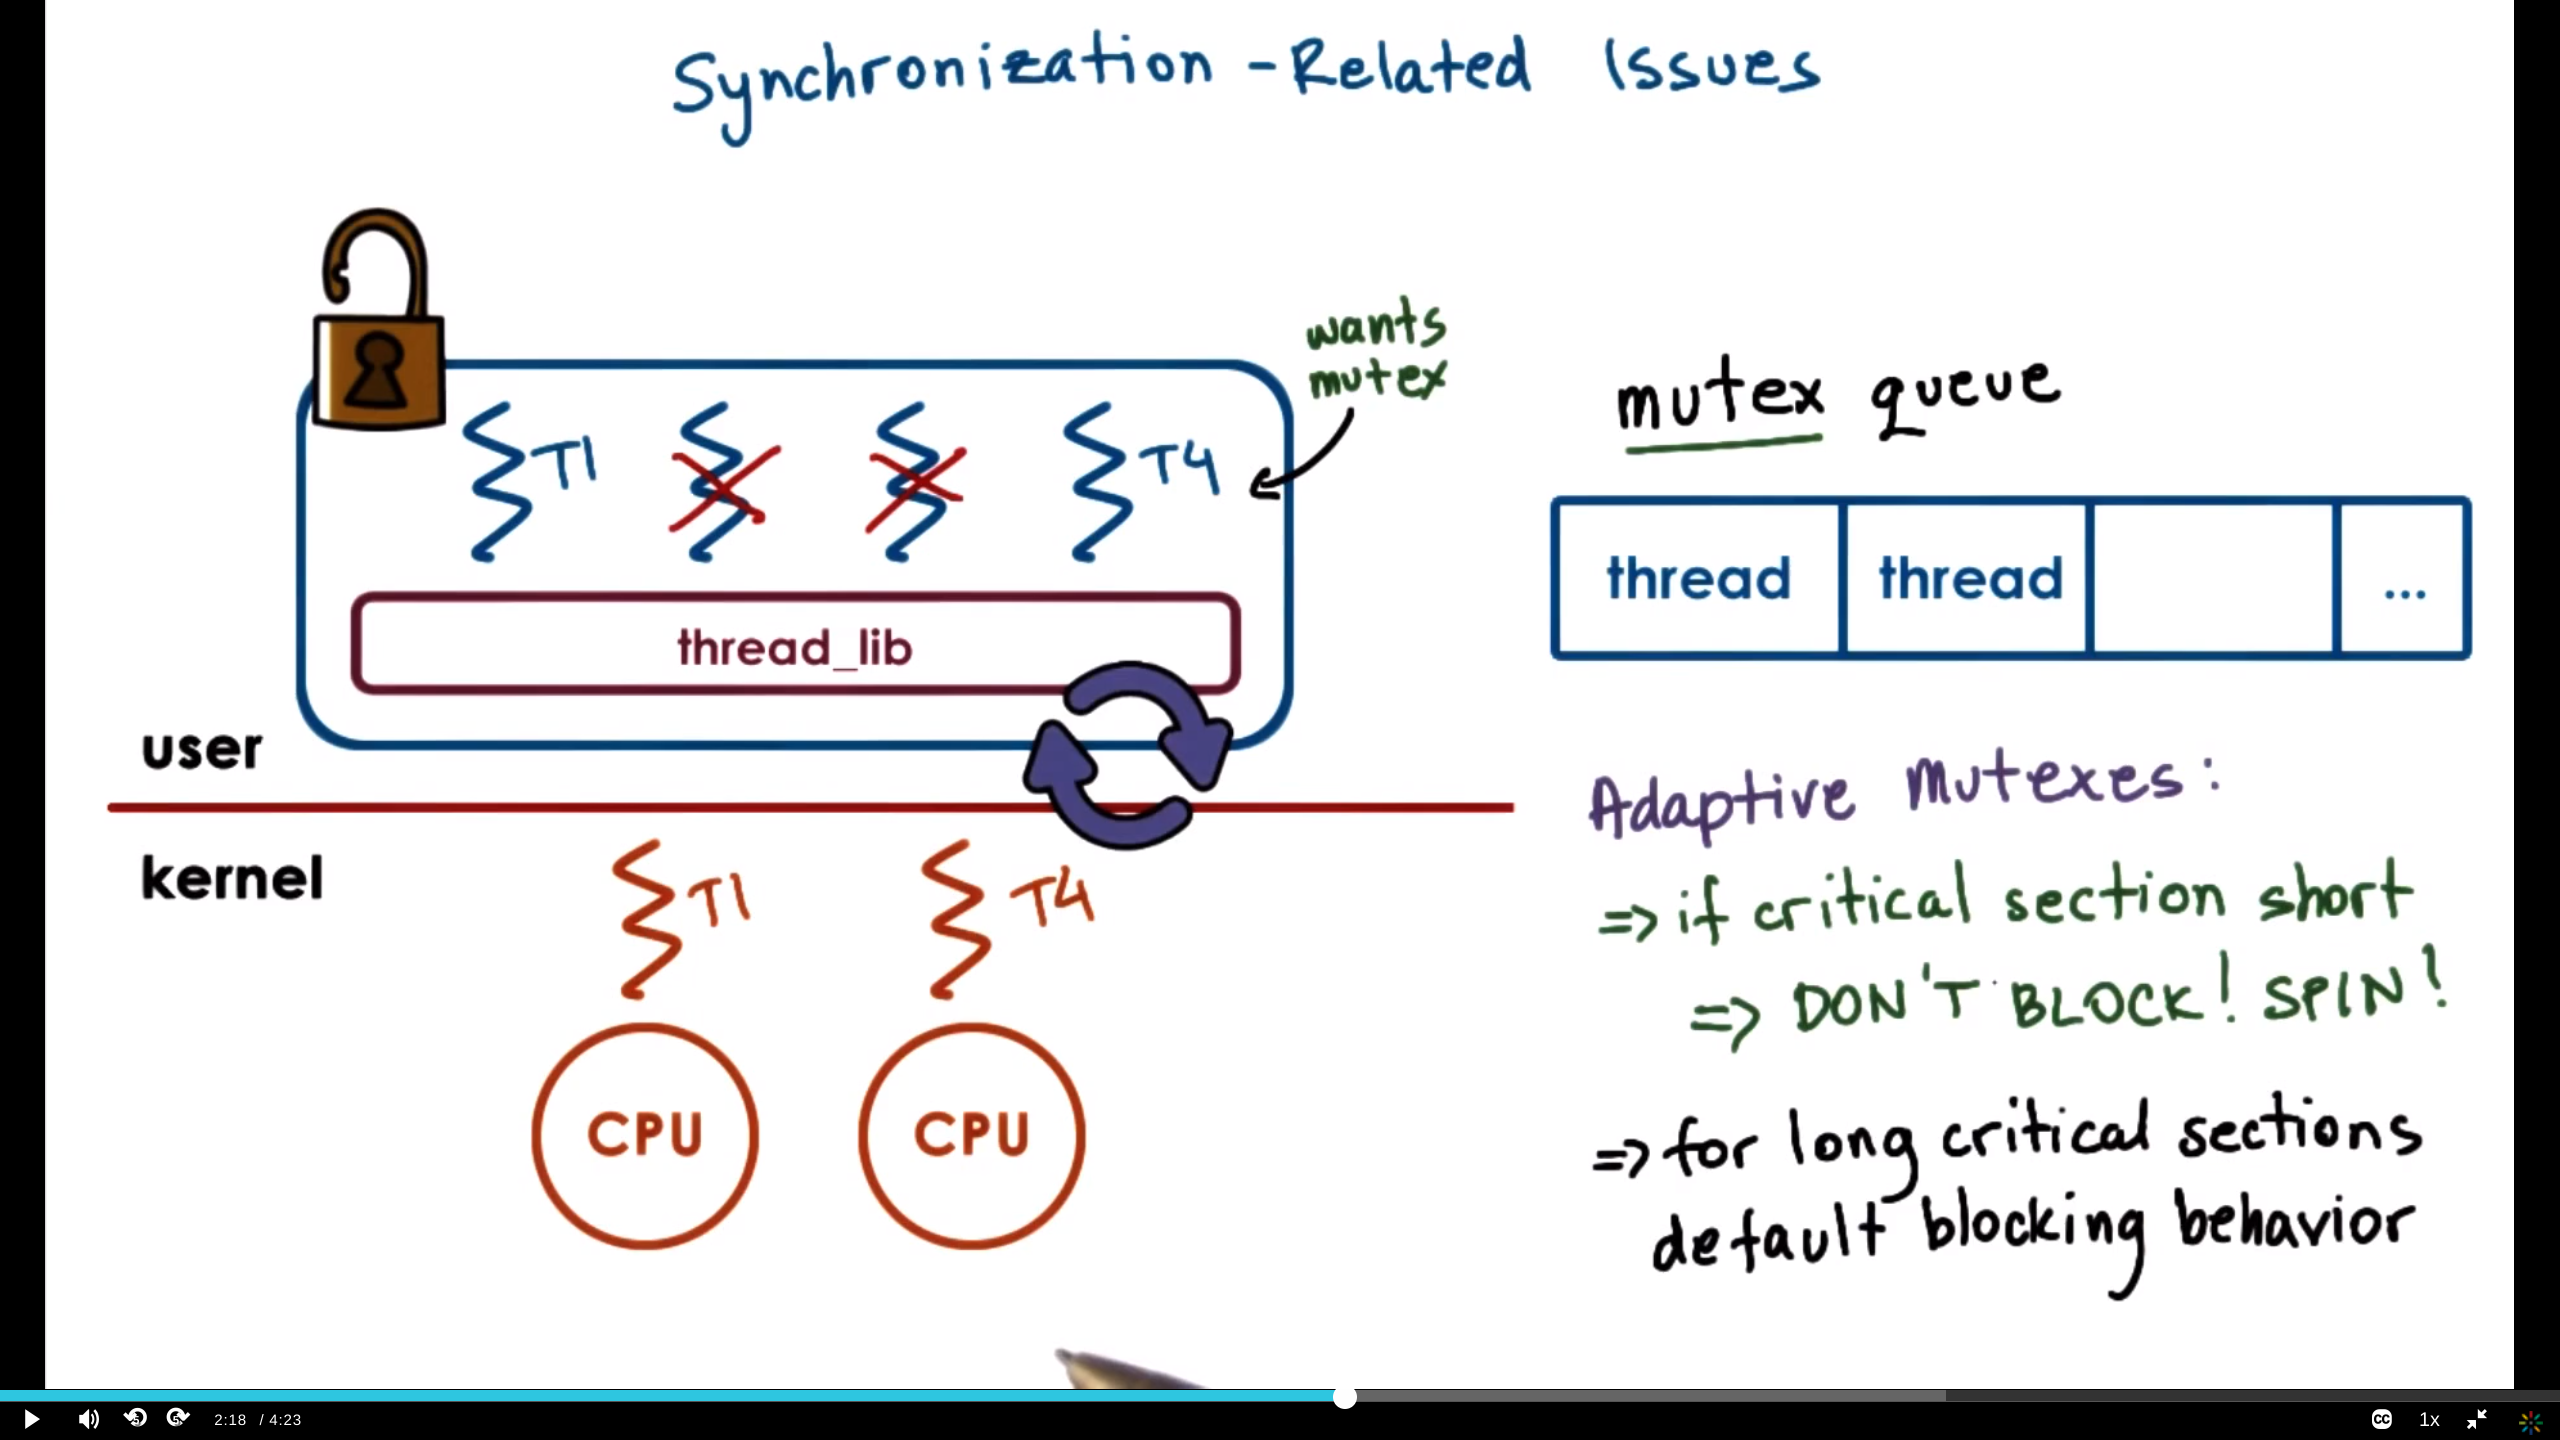 Synchronization - Related Issues
wants
mutex
T1
T4
thread_lib
user
kernel
T1
T4
CPU
CPU
mutex queue
thread
thread
...
Adaptive mutexes:
=> if critical section short
=> DON'T BLOCK! SPIN!
=> for long critical sections
default blocking behavior
5
5
2:18 / 4:23
CC
1x